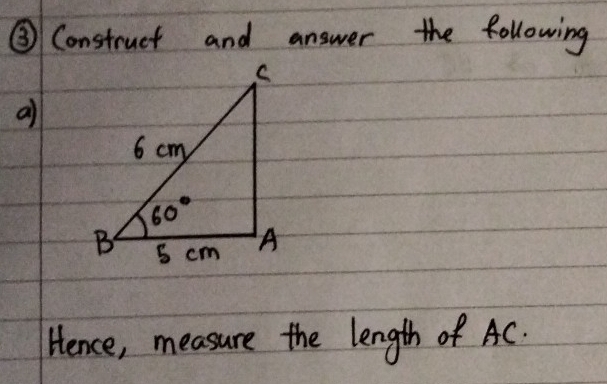 ③ Construct and answer the following
a)
C
6 cm
60°
B A
5 cm
Hence, measure the length of AC.